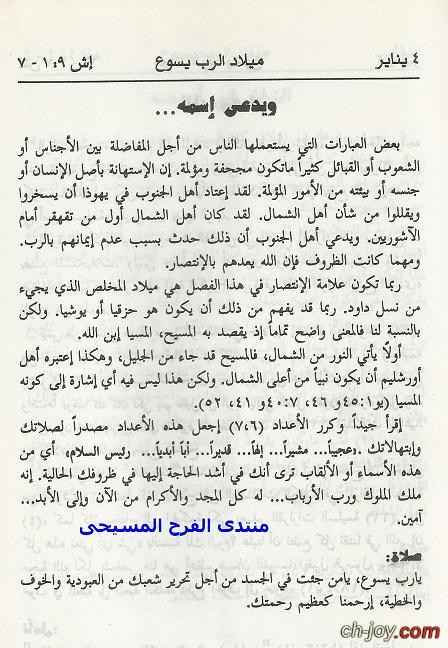 ٤ يناير ميلاد الرب يسوع إش ٩: ١ - ٧
ويدعى إسمه...
بعض العبارات التي يستعملها الناس من أجل المفاضلة بين الأجناس أو
الشعوب أو القبائل كثيراً ماتكون مجحفة ومؤلمة. إن الإستهانة بأصل الإنسان أو
جنسه أو بيئته من الأمور المؤلمة. لقد إعتاد أهل الجنوب في يهوذا أن يسخروا
ويقللوا من شأن أهل الشمال. لقد كان أهل الشمال أول من تقهقر أمام
الآشوريين. ويدعي أهل الجنوب أن ذلك حدث بسبب عدم إيمانهم بالرب.
ومهما كانت الظروف فإن الله يعدهم بالإنتصار.
ربما تكون علامة الإنتصار في هذا الفصل هي ميلاد المخلص الذي يجيء
من نسل داود. ربما قد يفهم من ذلك أن يكون هو حزقيا أو يوشيا. ولكن
بالنسبة لنا فالمعنى واضح تماماً إذ يقصد به المسيح، المسيا إبن الله.
أولاً يأتي النور من الشمال، فالمسيح قد جاء من الجليل، وهكذا إعتبره أهل
أورشليم أن يكون نبياً من أعلى الشمال. ولكن هذا ليس فيه أي إشارة إلى كونه
المسيا (يو١: ٤٥ و ٤٦، ٧: ٤٠ و ٤١، ٥٢).
إقرأ جيداً وكرر الأعداد (٧،٦) إجعل هذه الأعداد مصدراً لصلاتك
وإبتهالاتك. «عجيباً... مشيراً... إلهاً... قديراً... أباً أبدياً... رئيس السلام، أي من
هذه الأسماء أو الألقاب ترى أنك في أشد الحاجة إليها في ظروفك الحالية. إنه
ملك الملوك ورب الأرباب... له كل المجد والأكرام من الآن وإلى الأبد...
آمين.
منتدى الفرح المسيحى
صلاة:
يارب يسوع، يامن جئت في الجسد من أجل تحرير شعبك من العبودية والخوف
والخطية، إرحمنا كعظيم رحمتك.
ch-joy.com